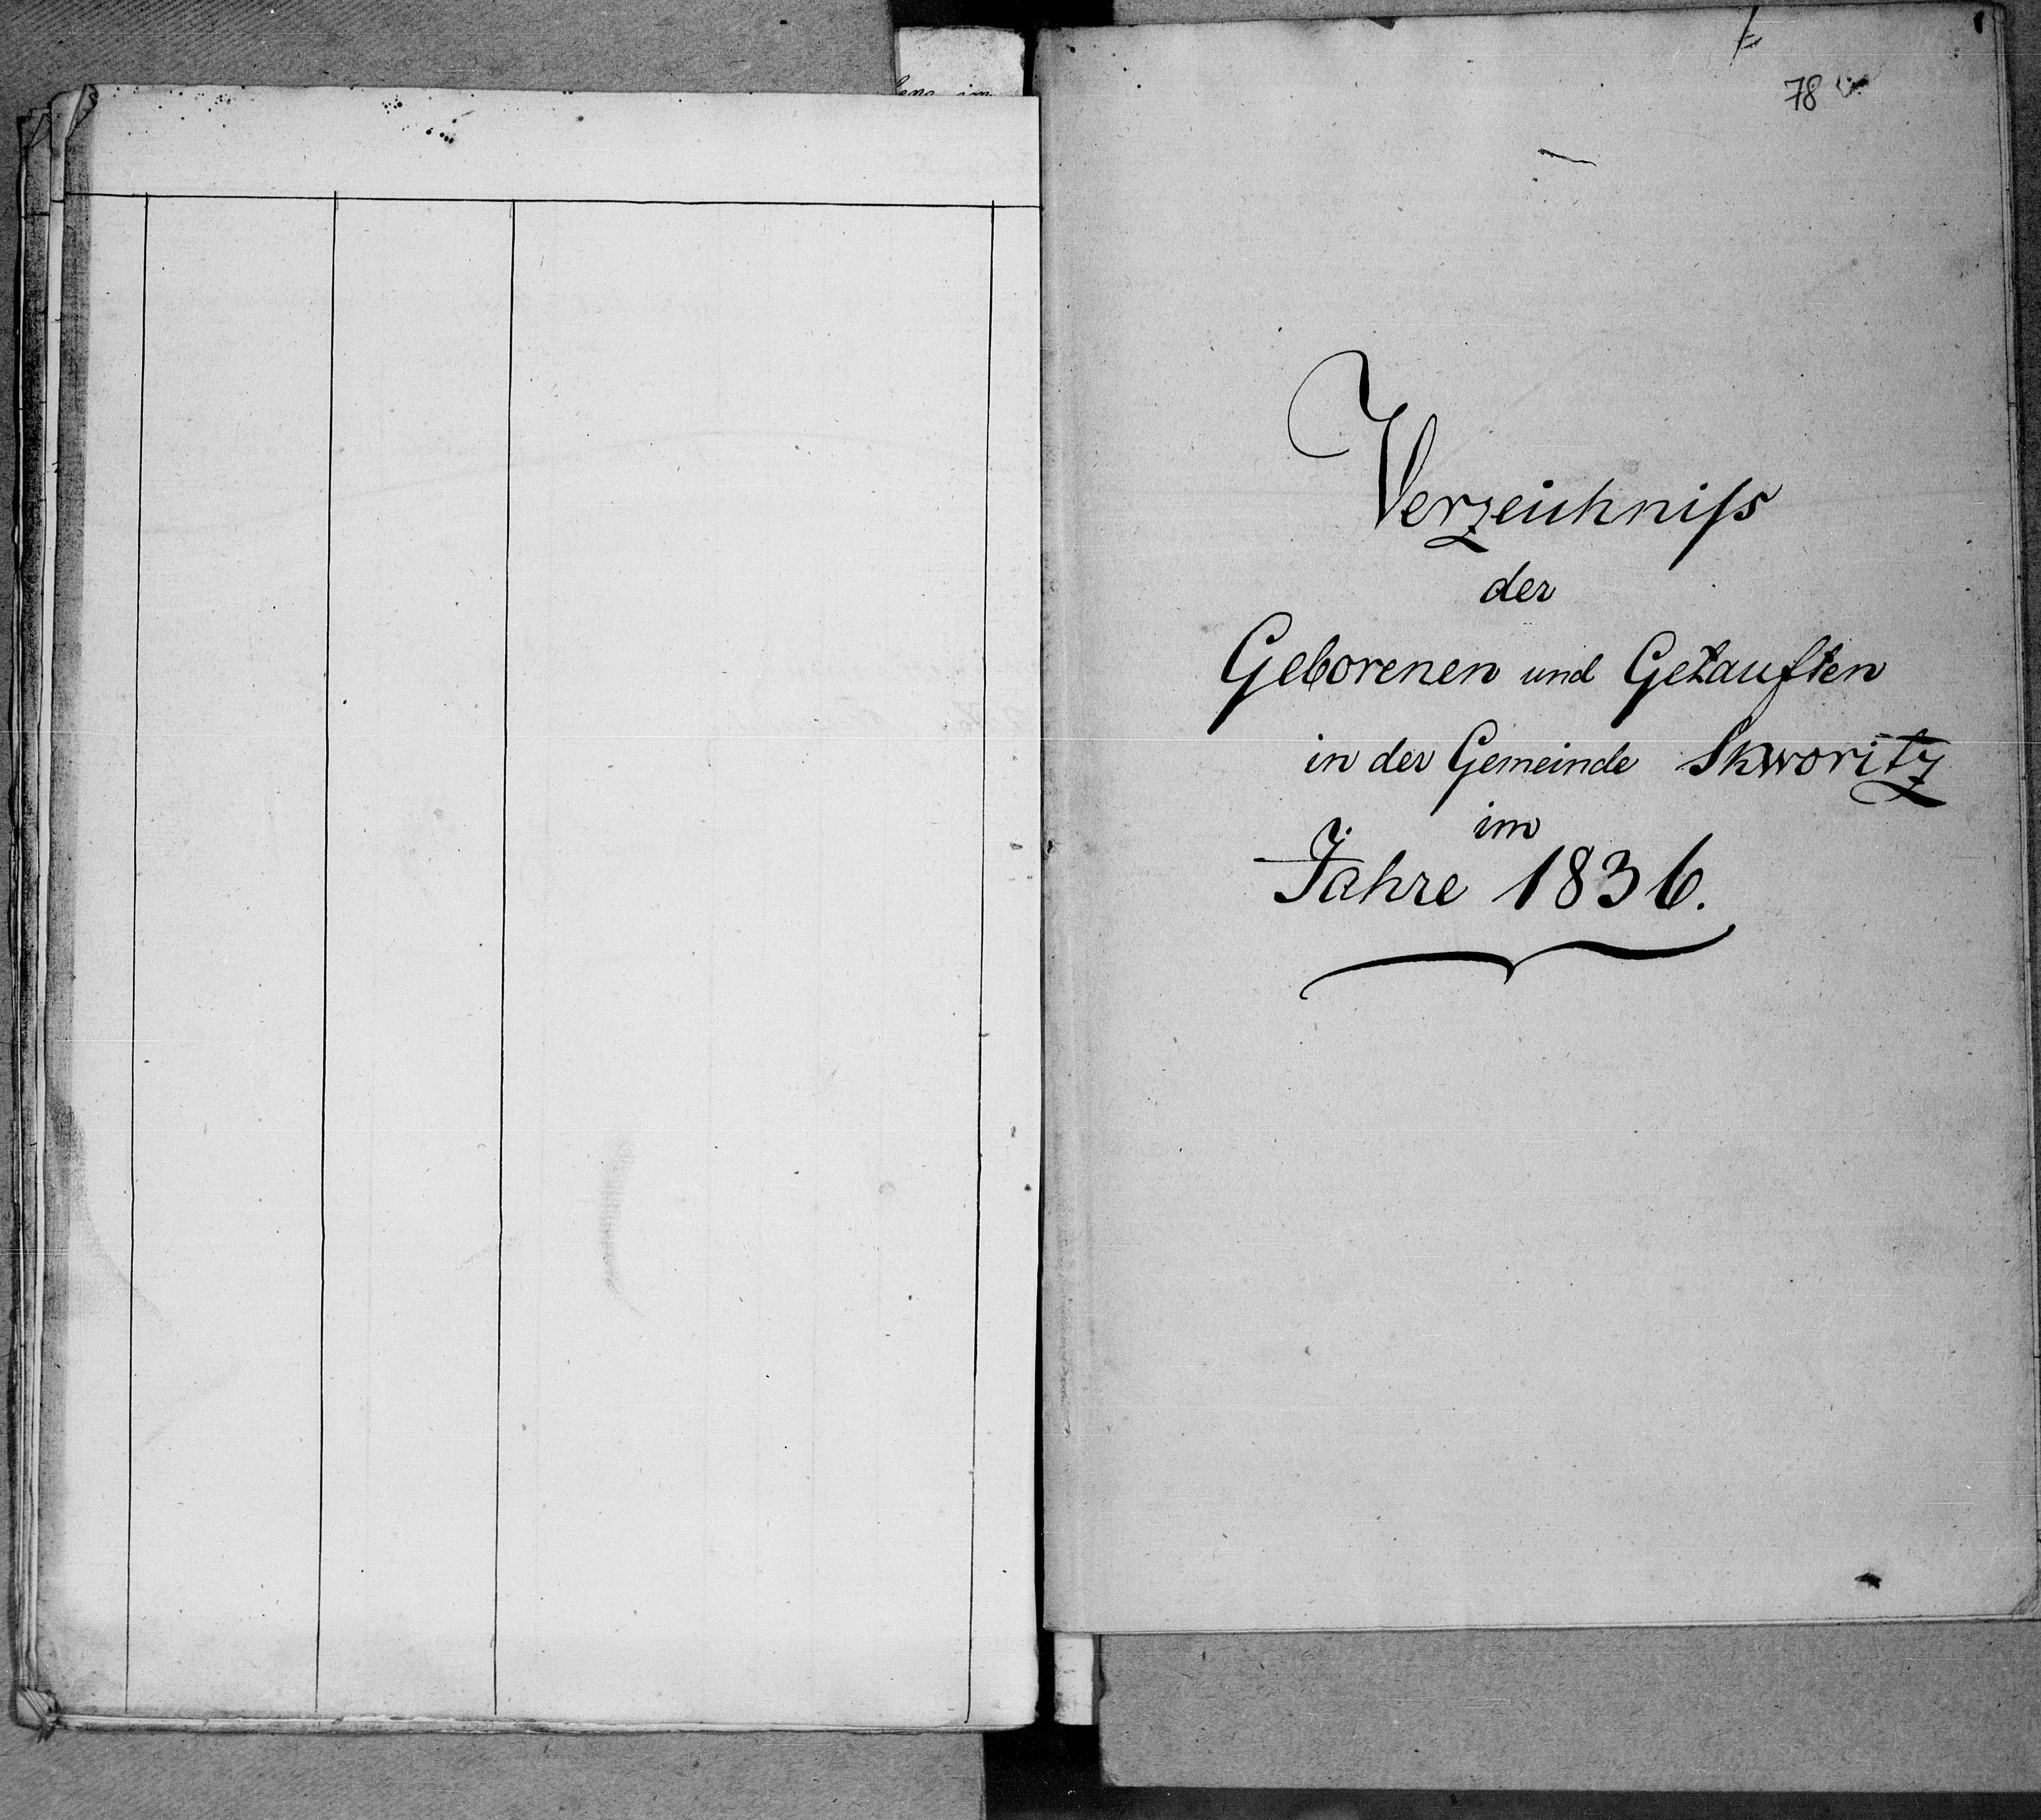 78
Verzeichniſs
der
Geborenen und Getauften
in der Gemeinde Skworitz
im
Jahre 1836.